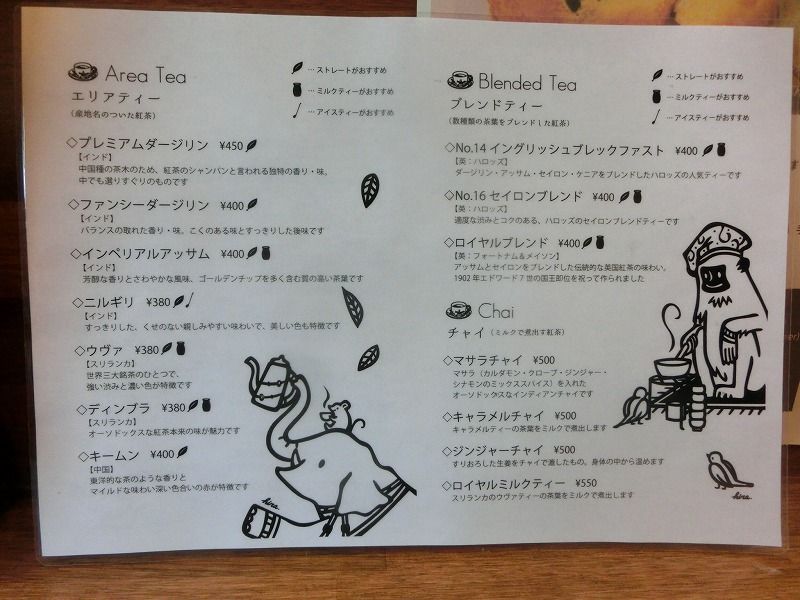 Area Tea
エリアティー
(産地名のついた紅茶)
… ストレートがおすすめ
… ミルクティーがおすすめ
… アイスティーがおすすめ
◇プレミアムダージリン ¥450
【インド】
中国種の茶木のため、紅茶のシャンパンと言われる独特の香り・味。
中でも選りすぐりのものです
◇ファンシーダージリン ¥400
【インド】
バランスの取れた香り・味。こくのある味とすっきりした後味です
◇インペリアルアッサム ¥400
【インド】
芳醇な香りとさわやかな風味、ゴールデンチップを多く含む質の高い茶葉です
◇ニルギリ ¥380
【インド】
すっきりした、くせのない親しみやすい味わいで、美しい色も特徴です
◇ウヴァ ¥380
【スリランカ】
世界三大銘茶のひとつで、
強い渋みと濃い色が特徴です
◇ディンブラ ¥380
【スリランカ】
オーソドックスな紅茶本来の味が魅力です
◇キームン ¥400
【中国】
東洋的な茶のような香りと
マイルドな味わい深い色合いの赤が特徴です
hira
Blended Tea
ブレンドティー
(数種類の茶葉をブレンドした紅茶)
… ストレートがおすすめ
… ミルクティーがおすすめ
… アイスティーがおすすめ
◇No.14 イングリッシュブレックファスト ¥400
【英:ハロッズ】
ダージリン・アッサム・セイロン・ケニアをブレンドしたハロッズの人気ティーです
◇No.16 セイロンブレンド ¥400
【英:ハロッズ】
適度な渋みとコクのある、ハロッズのセイロンブレンドティーです
◇ロイヤルブレンド ¥400
【英:フォートナム&メイソン】
アッサムとセイロンをブレンドした伝統的な英国紅茶の味わい。
1902年エドワード7世の国王即位を祝って作られました
Chai
チャイ(ミルクで煮出す紅茶)
◇マサラチャイ ¥500
マサラ(カルダモン・クローブ・ジンジャー・
シナモンのミックススパイス)を入れた
オーソドックスなインディアンチャイです
◇キャラメルチャイ ¥500
キャラメルティーの茶葉をミルクで煮出します
◇ジンジャーチャイ ¥500
すりおろした生姜をチャイで漉したもの。身体の中から温めます
◇ロイヤルミルクティー ¥550
スリランカのウヴァティーの茶葉をミルクで煮出します
hira